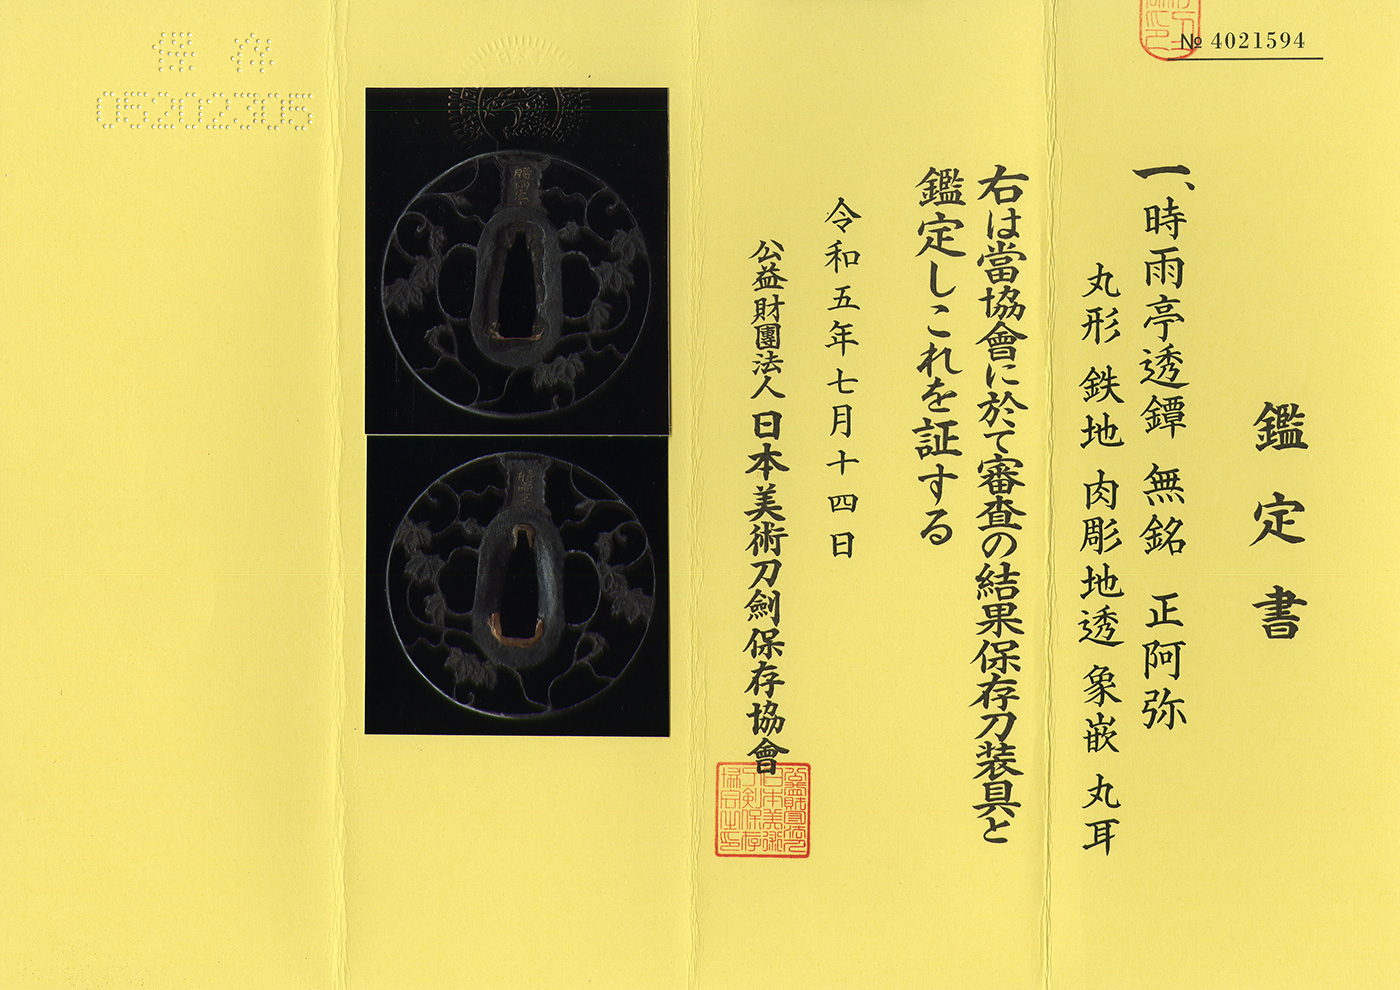 № 4021594
鑑定書
一、時雨亭透鐔 無銘 正阿弥
丸形 鉄地 肉彫地透 象嵌 丸耳
右は當協會に於て審査の結果保存刀装具と
鑑定しこれを証する
令和五年七月十四日
公益財團法人 日本美術刀劍保存協會
保存
05202305